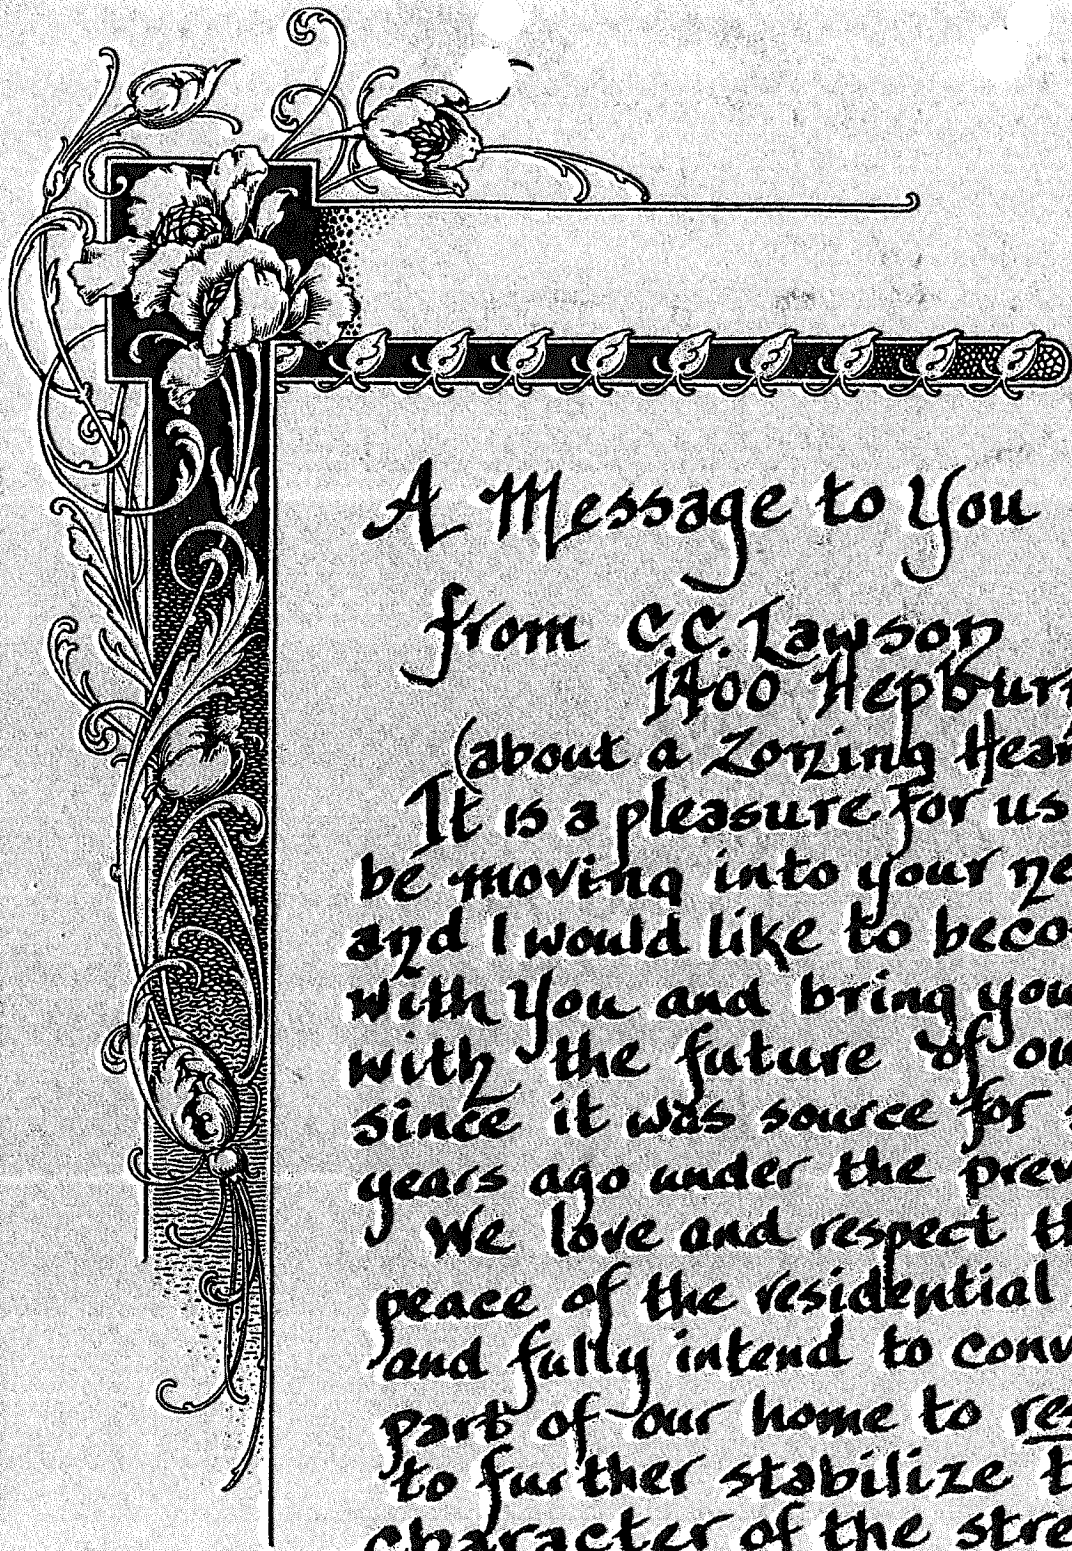 A Message to You
from C.C. Lawson
1400 Hepburn
(about a Zoning Hear
It is a pleasure for us
be moving into your ne
and I would like to beco
with You and bring you
with the future of ou
since it was source for s
years ago under the prev
We love and respect th
peace of the residential
and fully intend to conv
part of our home to res
to further stabilize t
character of the stre